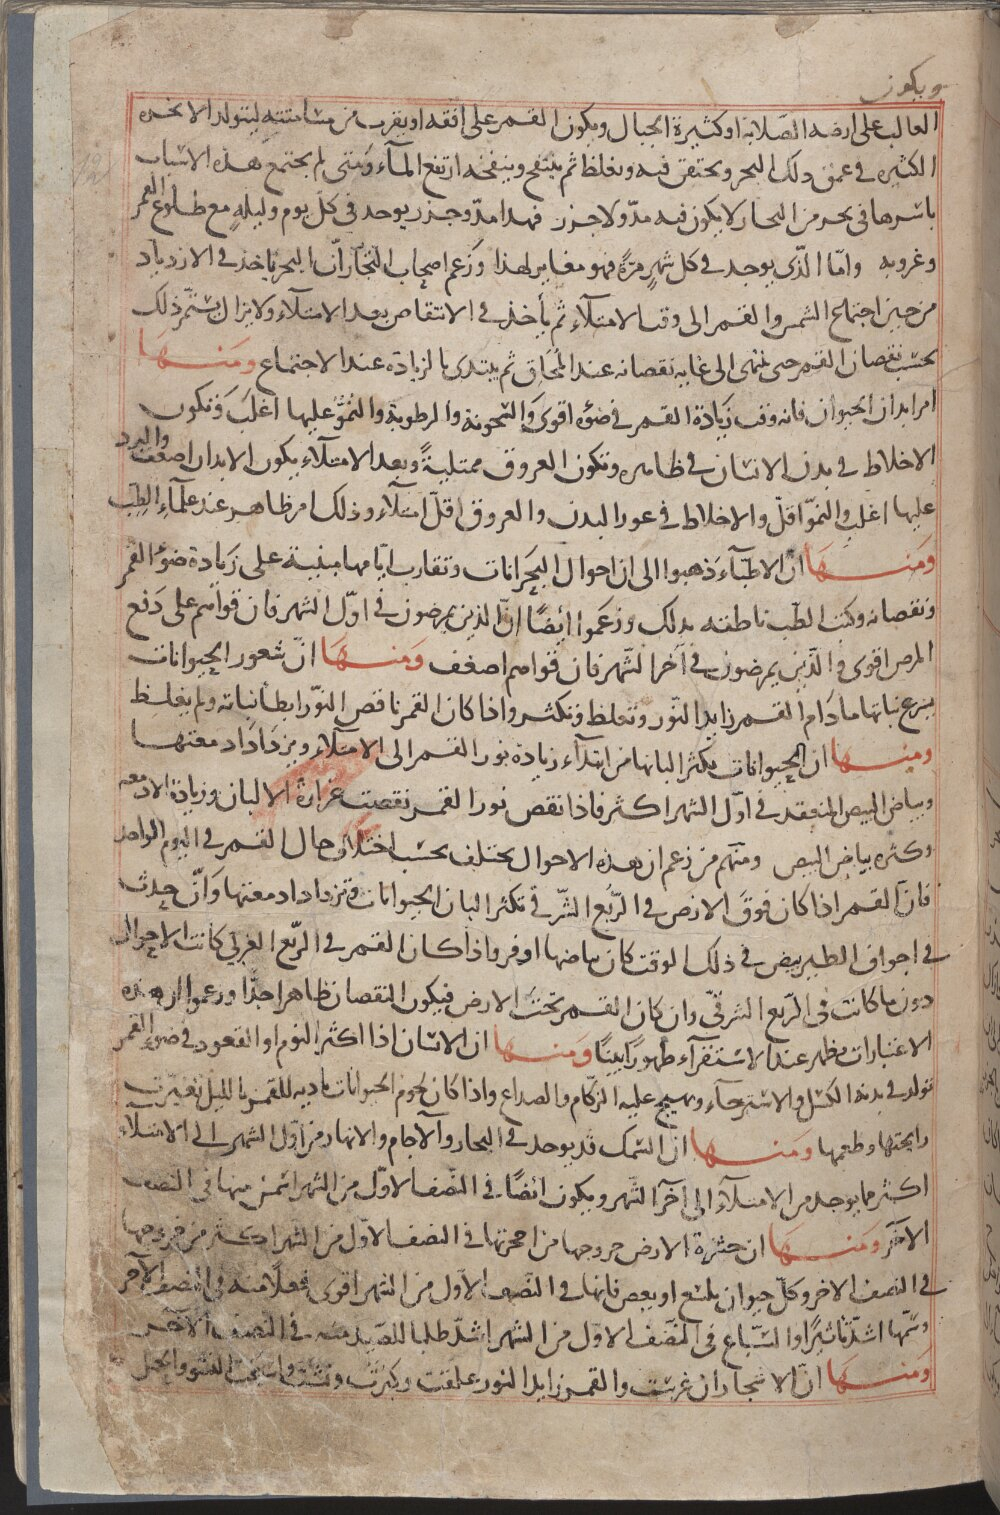 ويكون
الغالب على ارضه الصّلابة او كثيرة الجبال ويكون القمر على افقه او يقرب من مسامتته ليتولد الابخره
الكثيره فى عمق ذلك البحر ويحتقن فيه ويغلظ ثم ينتفخ وينفخه ارتفع المآء ومتى لم يجتمع هذه الاسباب
باسرها فى بحر من البحار لا يكون فيه مدّ ولا جزر فهذا مدّ وجزر يوجد فى كلّ يوم وليلهٍ مع طلوع القمر
وغروبه وامّا الّذى يوجد فى كل شهرٍ مرّة فهو مغاير لهذا وزعم اصحاب التجارّ انّ البحر ياخذ فى الازدياد
من حين اجتماع الشمس والقمر الى وقت الامتلآء ثم يأخذ فى الانتقاص بعد الامتلآء ولا يزال يستمر ذلك
بحسب نقصان القمر حتى ينتهى الى غايه نقصانه عند المُحَاق ثم يبتدى بالزيادة عند الاجتماع ومنها
امر ابدان الحيوان فانه وقت زيَادة القمر فى ضوءه اقوى والسّخونة والرطوبة والنموّ عليها اغلبَ وتكون
الاخلاط فى بدن الانسان فى ظاهره وتكون العروق ممتلية وبعد الامتلآء يكون الابدان اضعف والبرد
عليها اغلب والنموّ اقلّ والاخلاط فى غور البدن والعروق اقلّ امتلآء وذلك امر ظاهر عند علمآء الطبّ
ومنها انّ الاطبّآء ذهبوا الى ان احوال البُحرانات وتقارب ايّامها مبنية على زيَادة ضوء القمر
ونقصانه وكتب الطب ناطقه بذلك وزعموا أيضًا انّ الذين يمرضون فى اوّل الشهر فان قواهم على دَفع
المرض اقوى والّذين يمرضون فى آخر الشّهر فان قواهم اضعف ومنها انّ شعور الحيوانات
يسرع نباتها ما دَام القمر زايد النّور وتغلظ وتكثر واذا كان القمر ناقص النّور ابطأ نباته ولم يغلظ
ومنها ان الحيوانات يكثر البانها من ابتدآء زيادة نور القمر الى الامتلآء ويزدَاد ادمغتها
وبياض البيض المنعقد فى اوّل الشهر اكثر فاذا نقص نور القمر نقصت غزارة الالبان وزيادة الادمغه
وكثره بياض البيض ومنهم من زعم ان هذه الاحوال يختلف بحسب اختلاف حال القمر فى اليوم الواحد
فانّ القمر اذا كان فوقَ الارض فى الرّبع الشّرقى تكثر البان الحيوانات وتزداد ادمغتها وانّ حدث
فى اجواف الطير بيض فى ذلك الوقت كان بياضها اوفر واذا كان القمر فى الرّبع الغربى كانت الاحوال
دون ما كانت فى الرّبع الشرقىّ وان كان القمر تحت الارض فيكون النقصان ظاهرا جدًّا وزعموا ان هذه
الاعتبارات يظهر عند الاستقرآء ظهورًا بيّنًا ومنها ان الانسان اذا اكثر النوم او القعود فى ضوء القمر
تولد فى بدنه الكسل والاسترخآء ويهيج عليه الزّكام والصداع واذا كان لحوم الحيوانات باديه للقمر بالليل تغيّرت
رايحتها وطعمها ومنها انّ السّمك قد يوجد فى البحار والآجام والانهار من اوّل الشهر الى الامتلآء
اكثر مما يوجد من الامتلآء الى آخر الشّهر ويكون ايضًا فى النّصف الاوّل من الشهر اسمن منها فى النصف
الآخَر ومنها ان حشرة الارض خروجها من اجحرتها فى النصف الاوّل من الشهر اكثر من خروجها
فى النصف الاخر وكلّ حيوان يلسع او يعض فانها فى النّصف الاوّل من الشهر اقوى فعلا منه فى النّصف الآخر
وسمّها اشدّ تاثيرًا والسّباع فى النّصف الاوّل من الشهر اشدّ طلبا للصّيد منه فى النّصف الآخر
ومنها انّ الاشجار ان غرست والقمر زايد النور علقت وكبرت ونشت واسرعت النشو والحمل